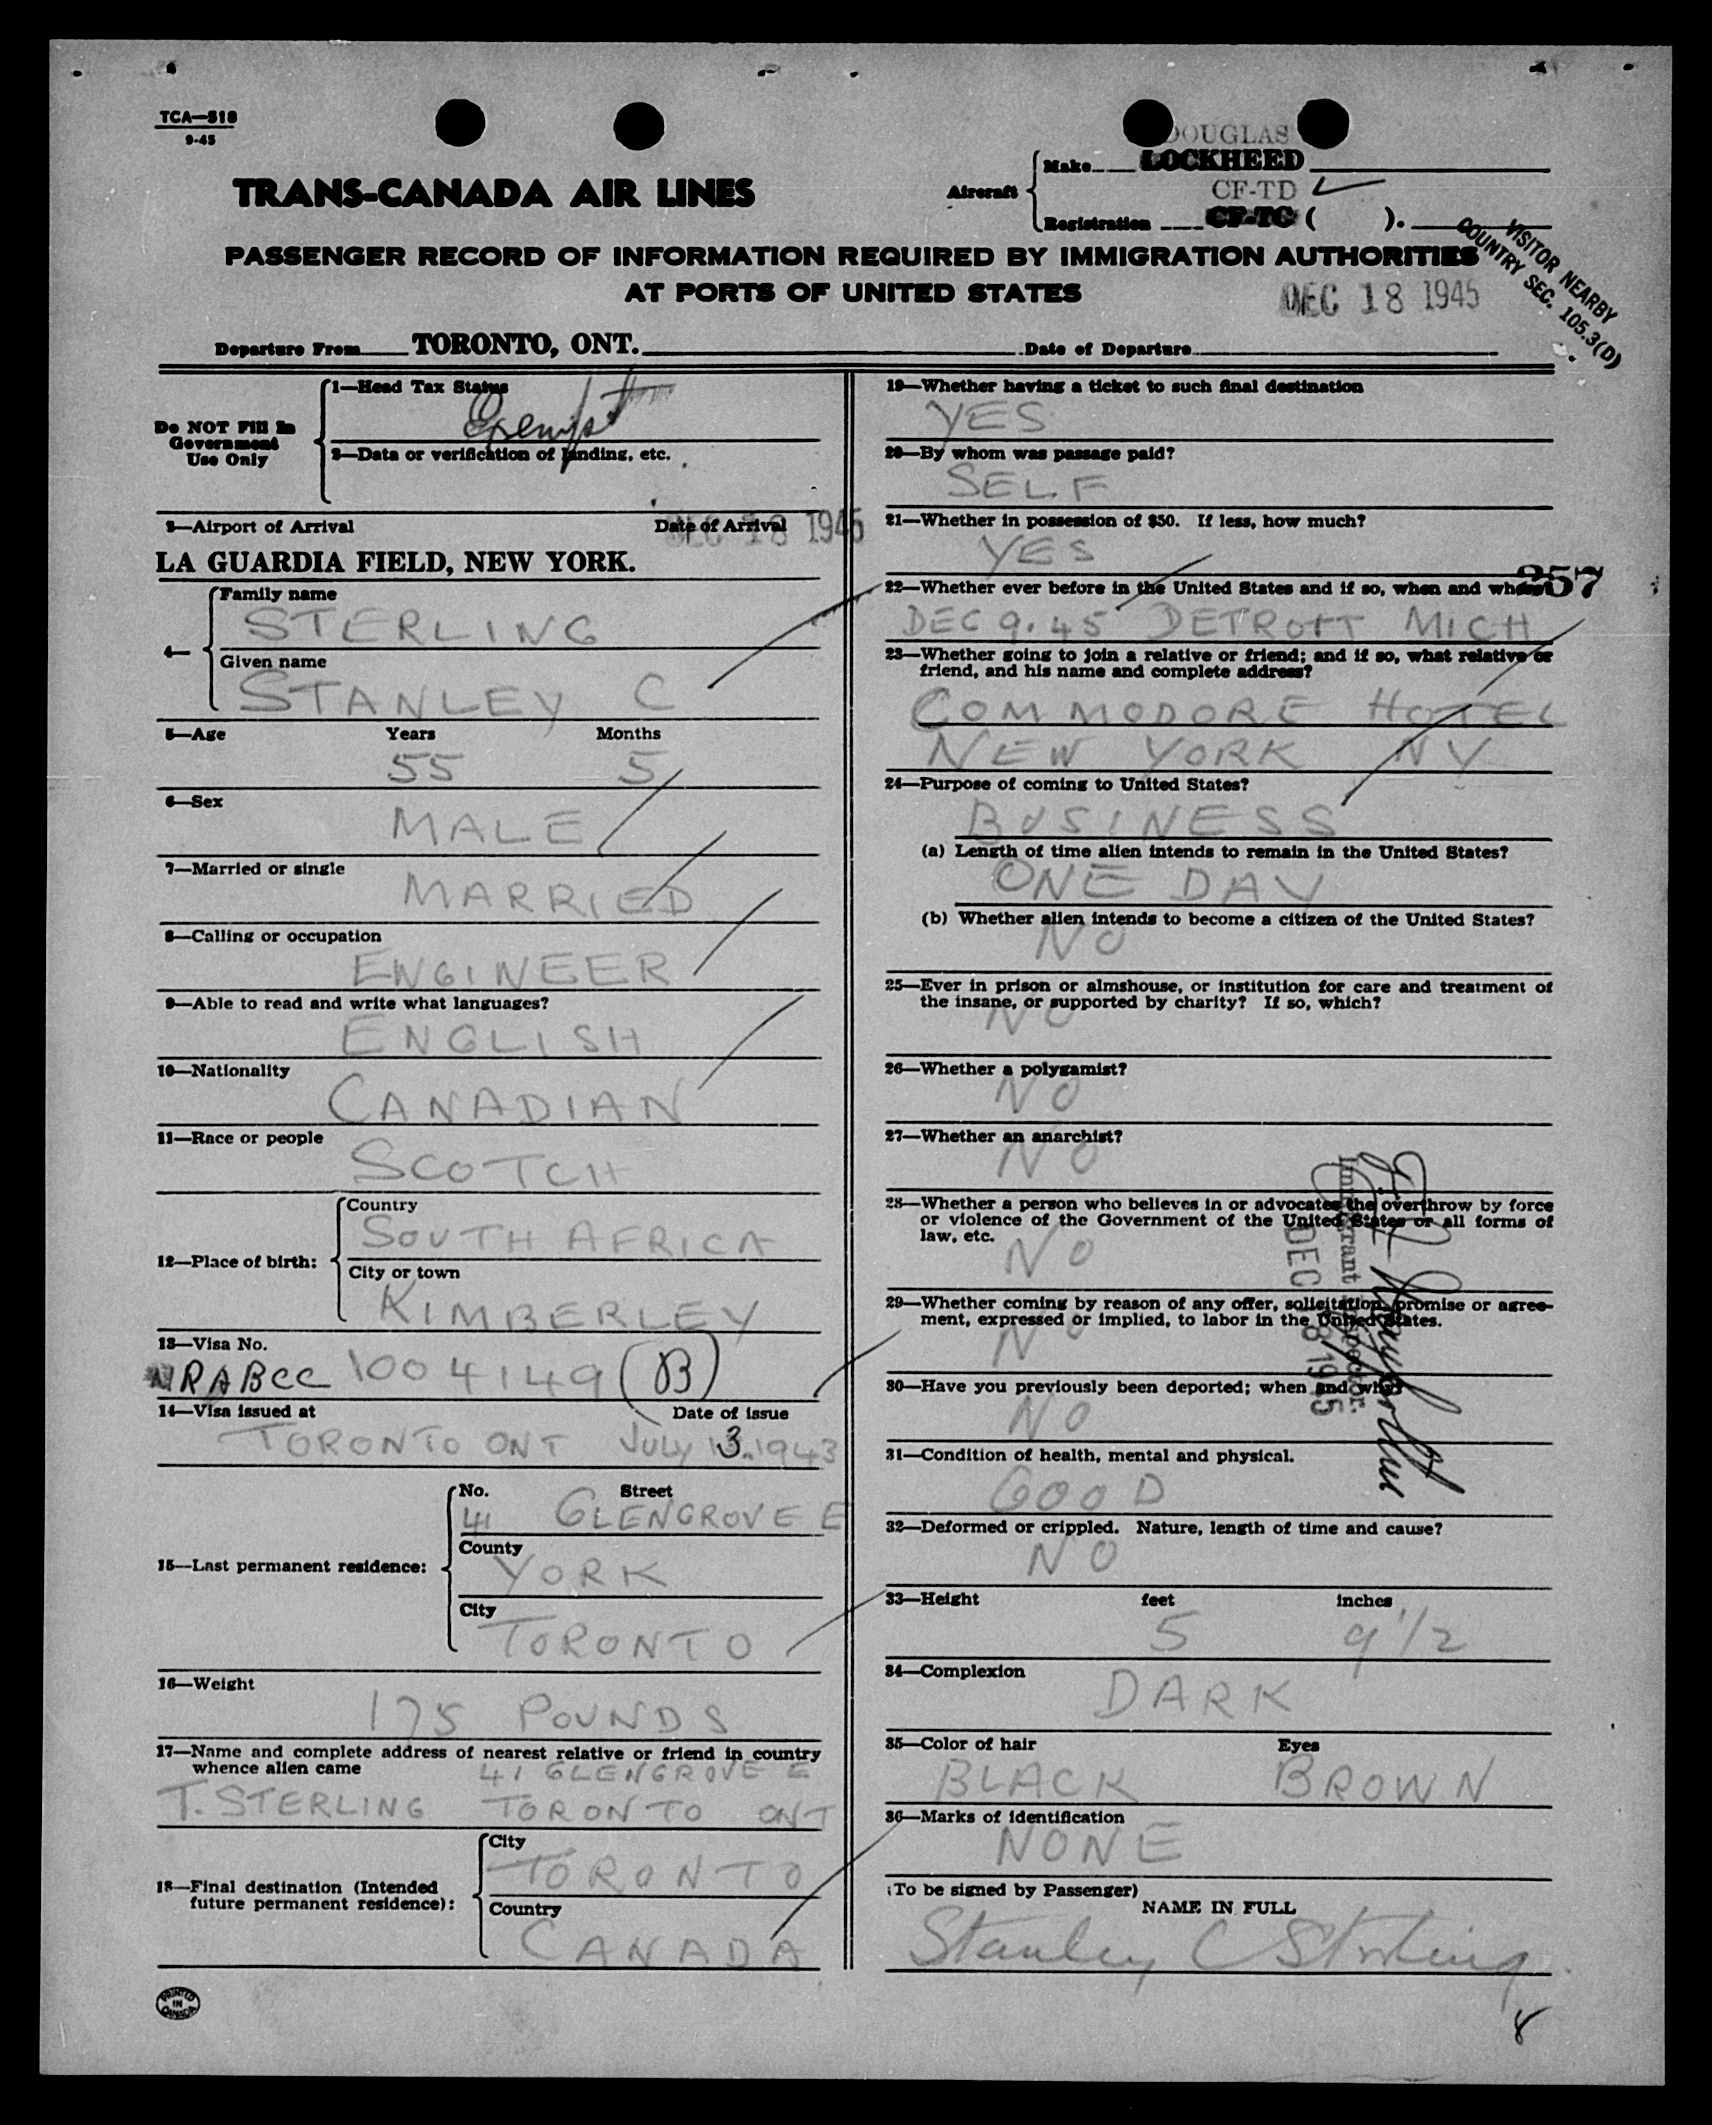 TCA—518
9-45
TRANS-CANADA AIR LINES
DOUGLAS
Aircraft
Make LOCKHEED
CF-TD
Registration CF-TC ( ).
PASSENGER RECORD OF INFORMATION REQUIRED BY IMMIGRATION AUTHORITIES
AT PORTS OF UNITED STATES
VISITOR NEARBY
COUNTRY SEC. 105.3(D)
DEC 18 1945
Departure From TORONTO, ONT. Date of Departure
Do NOT Fill In
Government
Use Only
1—Head Tax Status
Exempt
2—Data or verification of landing, etc.
3—Airport of Arrival Date of Arrival
DEC 18 1945
LA GUARDIA FIELD, NEW YORK.
4—
Family name
STERLING
Given name
STANLEY C
5—Age Years Months
55 5
6—Sex
MALE
7—Married or single
MARRIED
8—Calling or occupation
ENGINEER
9—Able to read and write what languages?
ENGLISH
10—Nationality
CANADIAN
11—Race or people
SCOTCH
12—Place of birth:
Country
SOUTH AFRICA
City or town
KIMBERLEY
13—Visa No.
NRABCC 1004149 (B)
14—Visa issued at Date of issue
TORONTO ONT JULY 13. 1943
15—Last permanent residence:
No. Street
41 GLENGROVE E
County
YORK
City
TORONTO
16—Weight
175 POUNDS
17—Name and complete address of nearest relative or friend in country
whence alien came
41 GLENGROVE E
T. STERLING TORONTO ONT
18—Final destination (Intended
future permanent residence):
City
TORONTO
Country
CANADA
PRINTED
IN
CANADA
19—Whether having a ticket to such final destination
YES
20—By whom was passage paid?
SELF
21—Whether in possession of $50. If less, how much?
YES
257
22—Whether ever before in the United States and if so, when and where?
DEC 9. 45 DETROIT MICH
23—Whether going to join a relative or friend; and if so, what relative or
friend, and his name and complete address?
COMMODORE HOTEL
NEW YORK NY
24—Purpose of coming to United States?
BUSINESS
(a) Length of time alien intends to remain in the United States?
ONE DAY
(b) Whether alien intends to become a citizen of the United States?
NO
25—Ever in prison or almshouse, or institution for care and treatment of
the insane, or supported by charity? If so, which?
NO
26—Whether a polygamist?
NO
27—Whether an anarchist?
NO
28—Whether a person who believes in or advocates the overthrow by force
or violence of the Government of the United States or all forms of
law, etc.
NO
Immigrant Inspector.
DEC 18 1945
29—Whether coming by reason of any offer, solicitation, promise or agree-
ment, expressed or implied, to labor in the United States.
NO
30—Have you previously been deported; when and why?
NO
31—Condition of health, mental and physical.
GOOD
32—Deformed or crippled. Nature, length of time and cause?
NO
33—Height feet inches
5 9 1/2
34—Complexion
DARK
35—Color of hair Eyes
BLACK BROWN
36—Marks of identification
NONE
(To be signed by Passenger)
NAME IN FULL
Stanley C Sterling
8